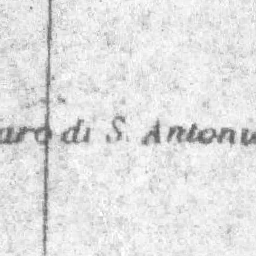 aro di S. Antoni